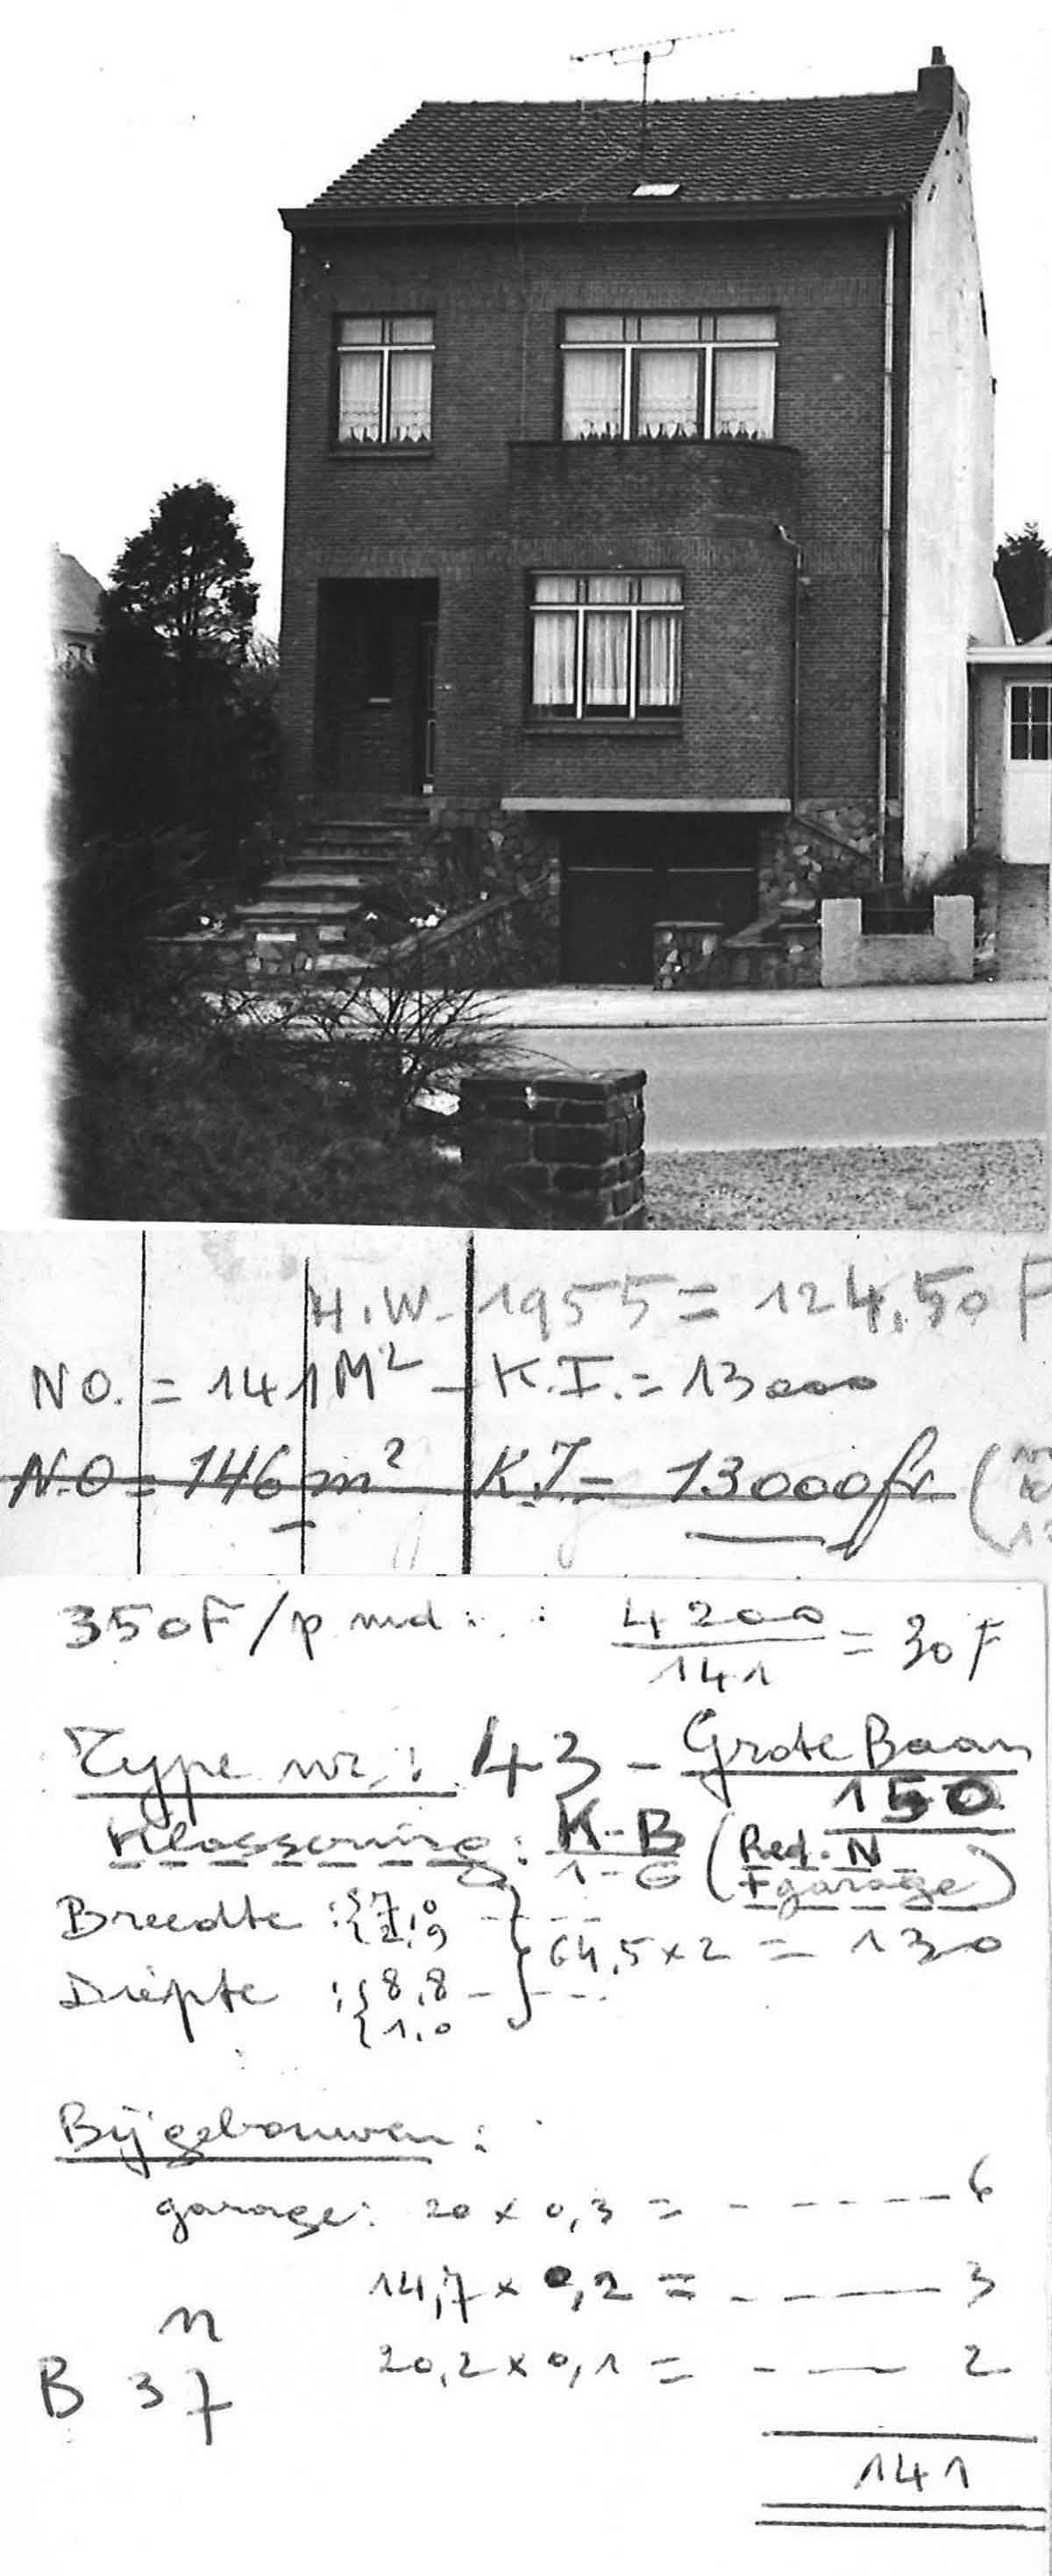 H.W. 1955 = 124,50 F
NO. = 141 M² - K.I. = 13000
N.O = 146 m² K.I = 13000fr (
350F/p md: : 4200/141 = 30 F
Type nr.: 43 - Grote Baan
150
Klassering: K-B (Red. N
1-6 + garage)
Breedte : { 7,0
{ 2,9 } 64,5 x 2 = 130
Diepte : { 8,8
{ 1,0
Bijgebouwen:
garage: 20 x 0,3 = 6
14,7 x 0,2 = 3
n
B 37 20,2 x 0,1 = 2
141